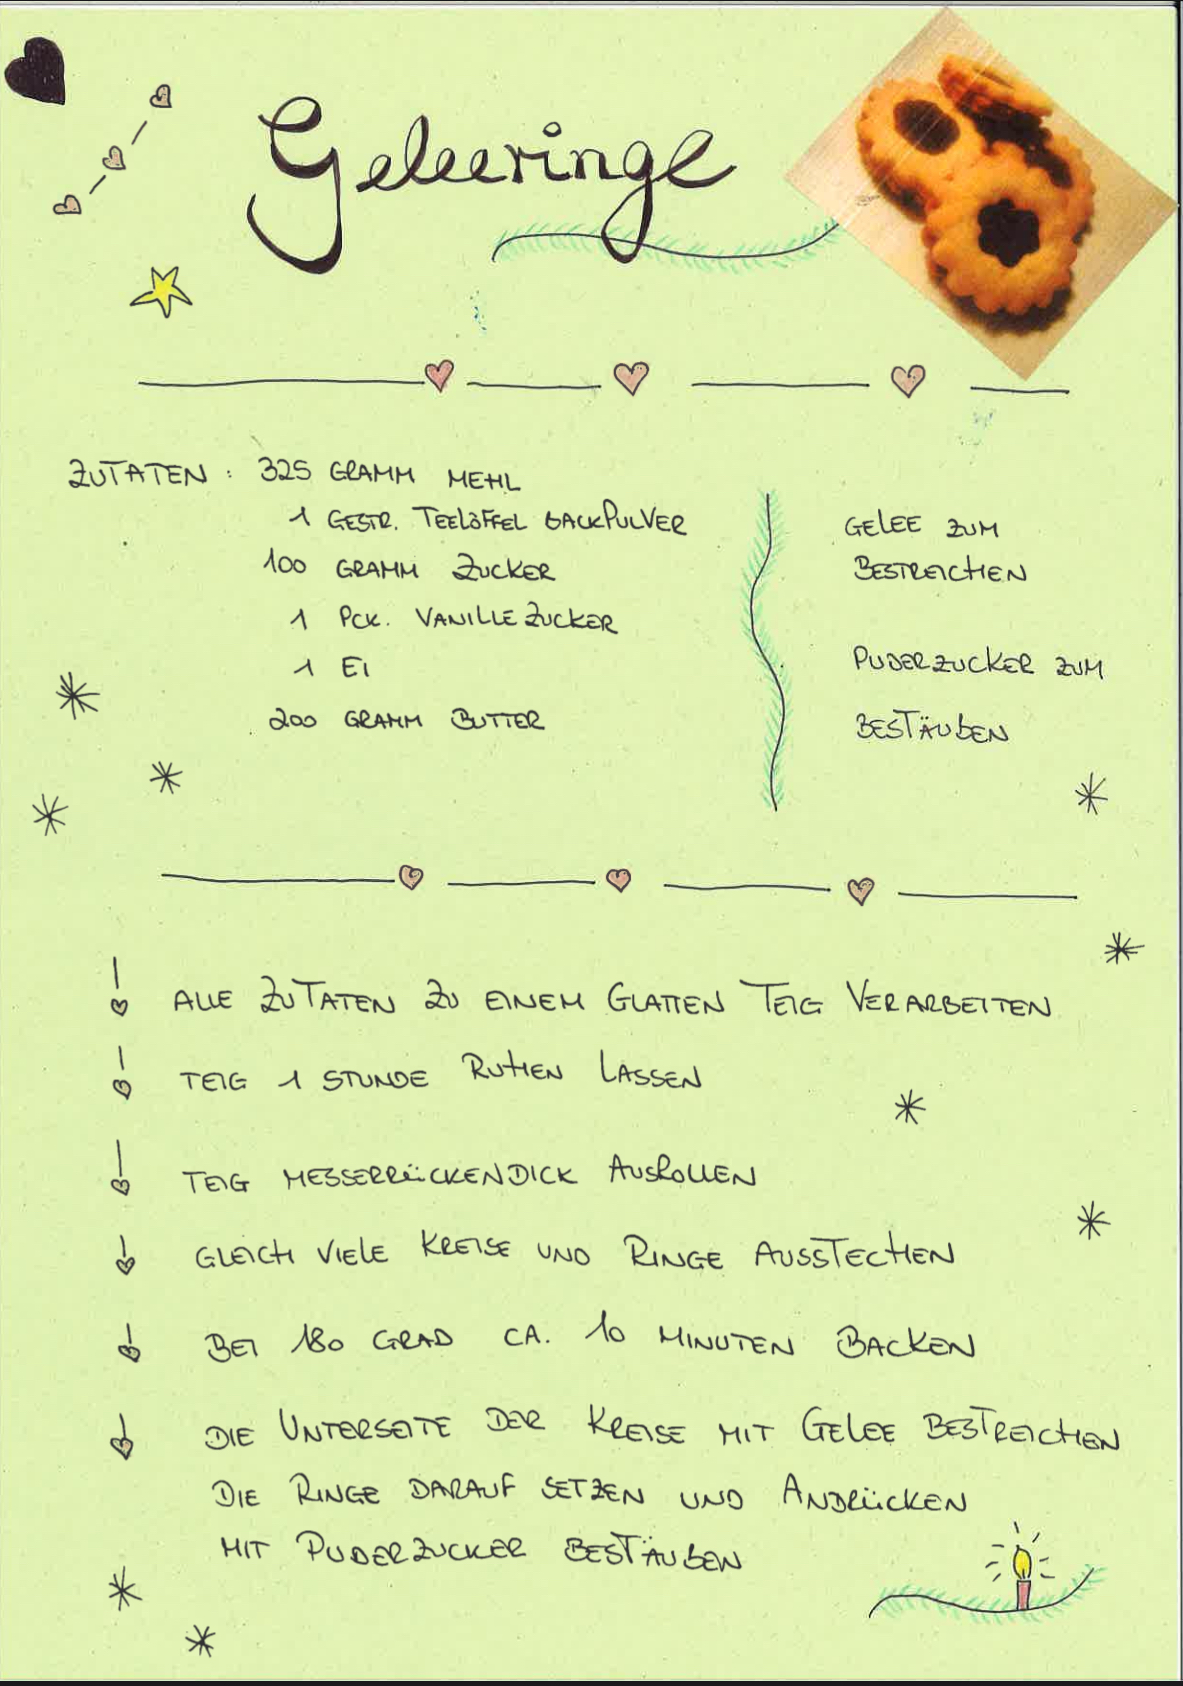 Geleeringe
ZUTATEN : 325 GRAMM MEHL
1 GESTR. TEELÖFFEL BACKPULVER
100 GRAMM ZUCKER
1 PCK. VANILLEZUCKER
1 EI
200 GRAMM BUTTER
GELEE ZUM
BESTREICHEN
PUDERZUCKER ZUM
BESTÄUBEN
ALLE ZUTATEN ZU EINEM GLATTEN TEIG VERARBEITEN
TEIG 1 STUNDE RUHEN LASSEN
TEIG MESSERRÜCKENDICK AUSROLLEN
GLEICH VIELE KREISE UND RINGE AUSSTECHEN
BEI 180 GRAD CA. 10 MINUTEN BACKEN
DIE UNTERSEITE DER KREISE MIT GELEE BESTREICHEN
DIE RINGE DARAUF SETZEN UND ANDRÜCKEN
MIT PUDERZUCKER BESTÄUBEN